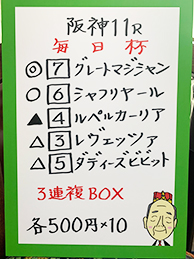 阪神11R
毎日杯
◎ 7 グレートマジシャン
○ 6 シャフリヤール
▲ 4 ルペルカーリア
△ 3 レヴェッツァ
△ 5 ダディーズビビット
3連複BOX
各500円×10